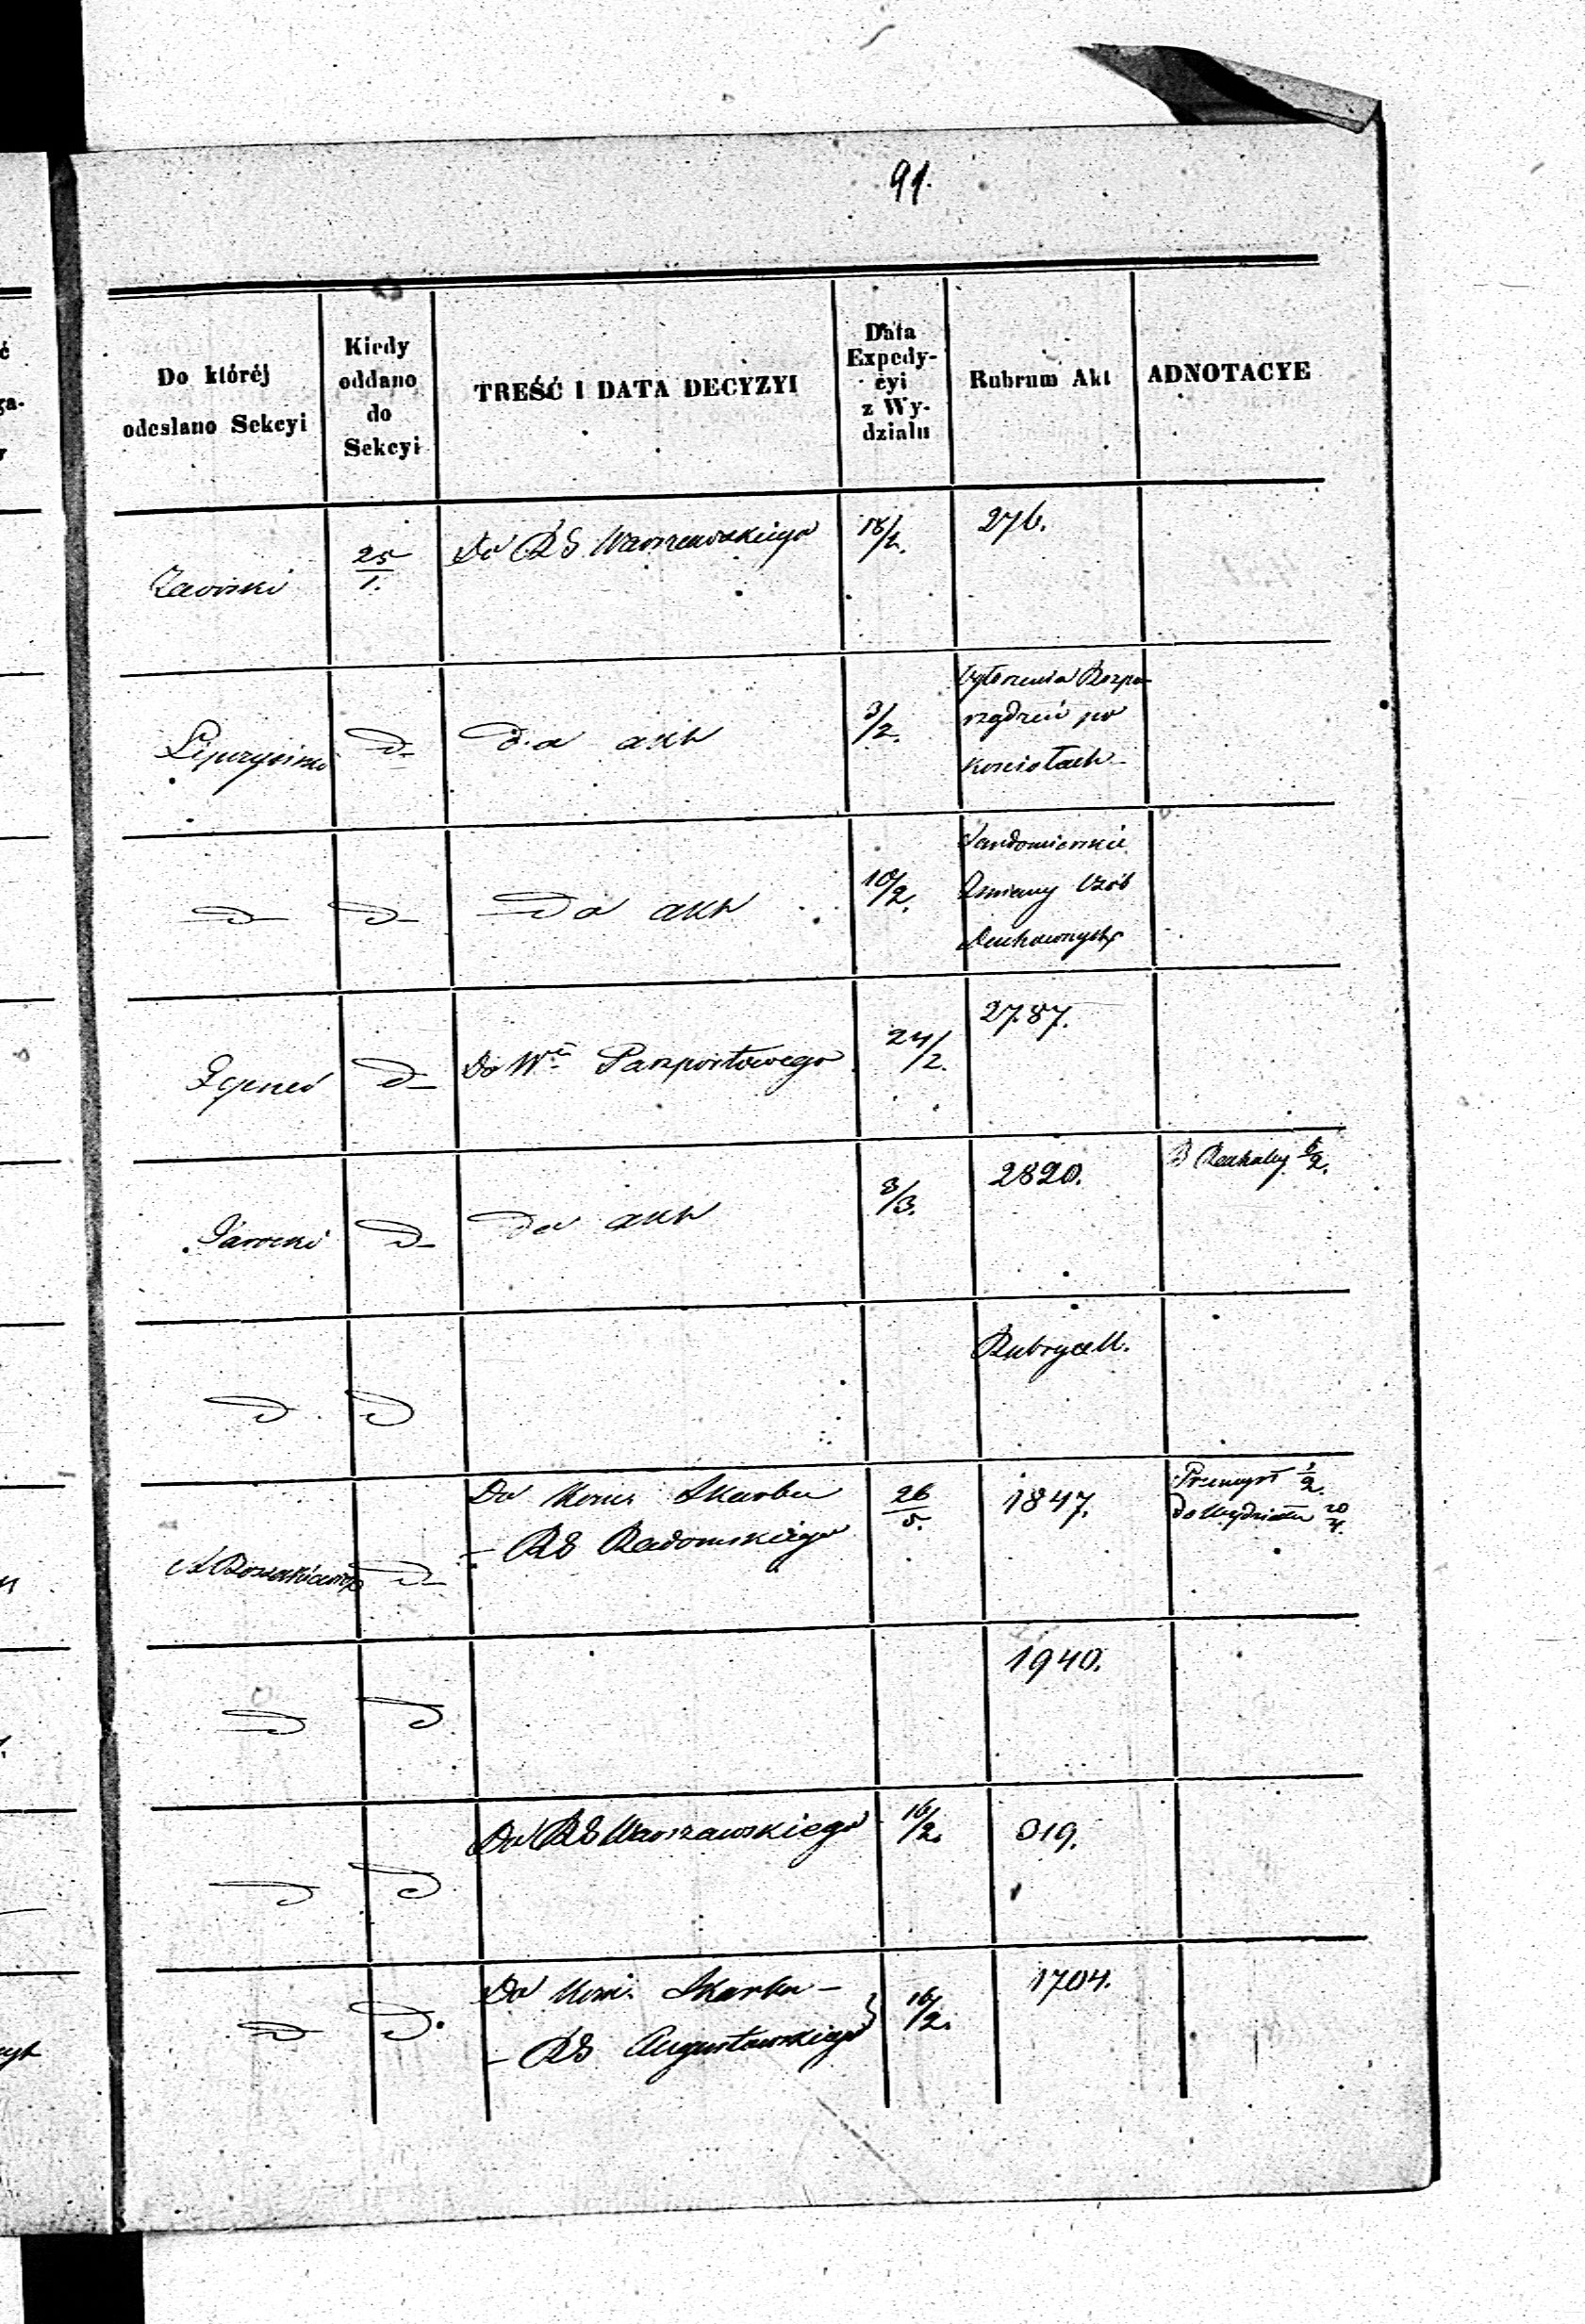 91.
Do której
odesłano Sekcyi
Kiedy
oddano
do
Sekcyi
TREŚĆ I DATA DECYZYI
Data
Expedy-
cyi
z Wy-
działu
Rubrum Akt
ADNOTACYE
25/1.
Do RG Warszawskiego
18/2.
276.
D-
Do akt
3/2.
Ogłoszenia Rozpo-
rządzeń po
kościołach
D- D-
Do akt
10/2.
Sandomierskie
Zmiany Osób
Duchownych
D-
Do Wu Paszportowego
24/2.
2787.
Jarocki
D-
Do akt
8/3.
2820.
D D
Rubrycell.
D-
Do Kom. Skarbu
- RG Radomskiego
26/5.
1847.
Przemysł 1/2.
do Wydziału 20/4.
D D
1940.
D D
Do RG Warszawskiego
16/2.
319.
D D.
Do Kom. Skarbu -
- RG Augustowskiego
16/2.
1704.